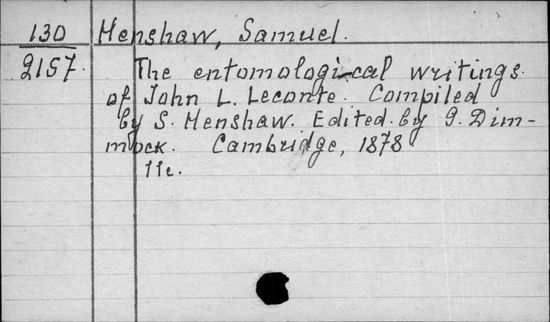 130 Henshaw, Samuel.
2157. The entomological writings
of John L. Leconte. Compiled
by S. Henshaw. Edited by G. Dim-
mock. Cambridge, 1878
11c.